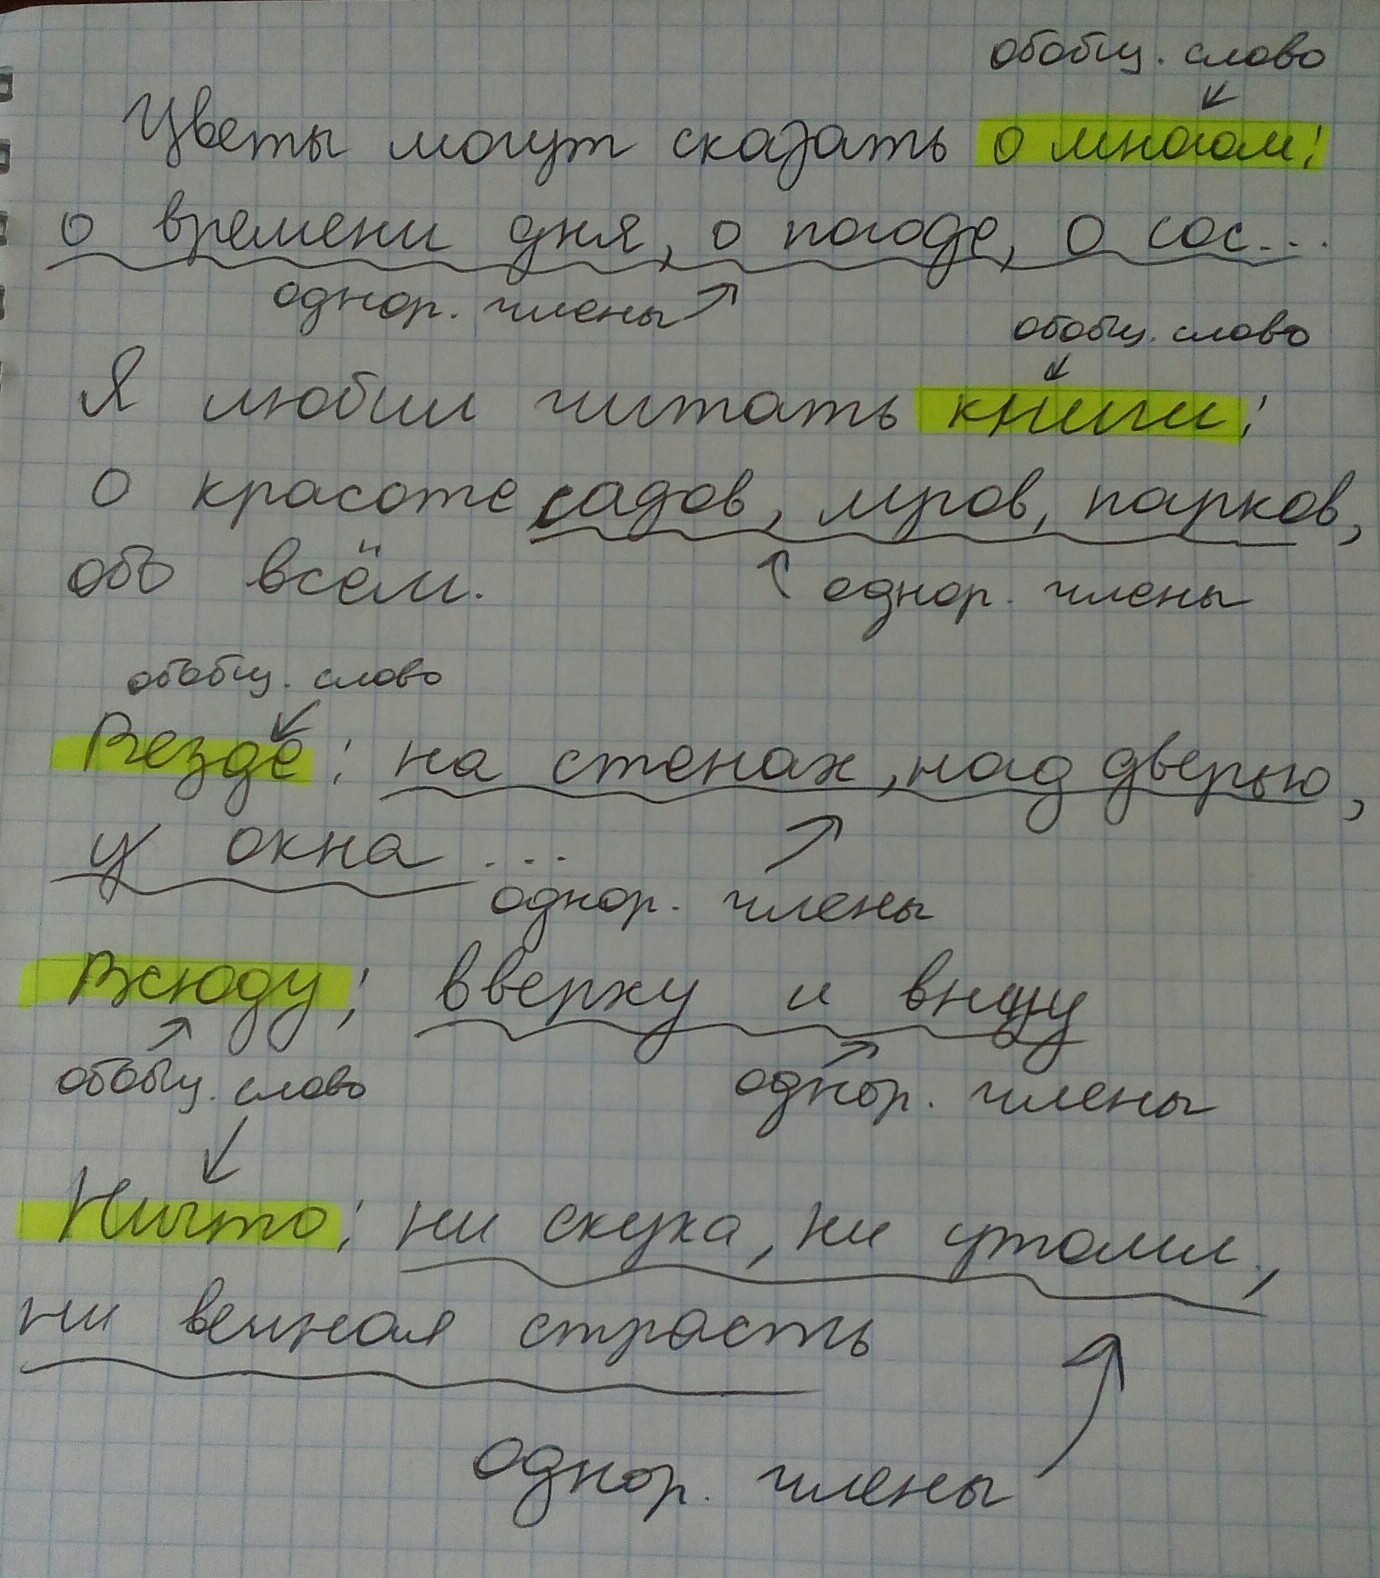 обобщ. слово
Цветы могут сказать о многом:
о времени дня, о погоде, о сос...
однор. члены
обобщ. слово
Я любил читать книги:
о красоте садов, лугов, парков,
обо всём.
однор. члены
обобщ. слово
Везде: на стенах, над дверью,
у окна ...
однор. члены
Всюду: вверху и внизу
обобщ. слово
однор. члены
Ничто: ни скука, ни утомл.,
ни вечная страсть
однор. члены